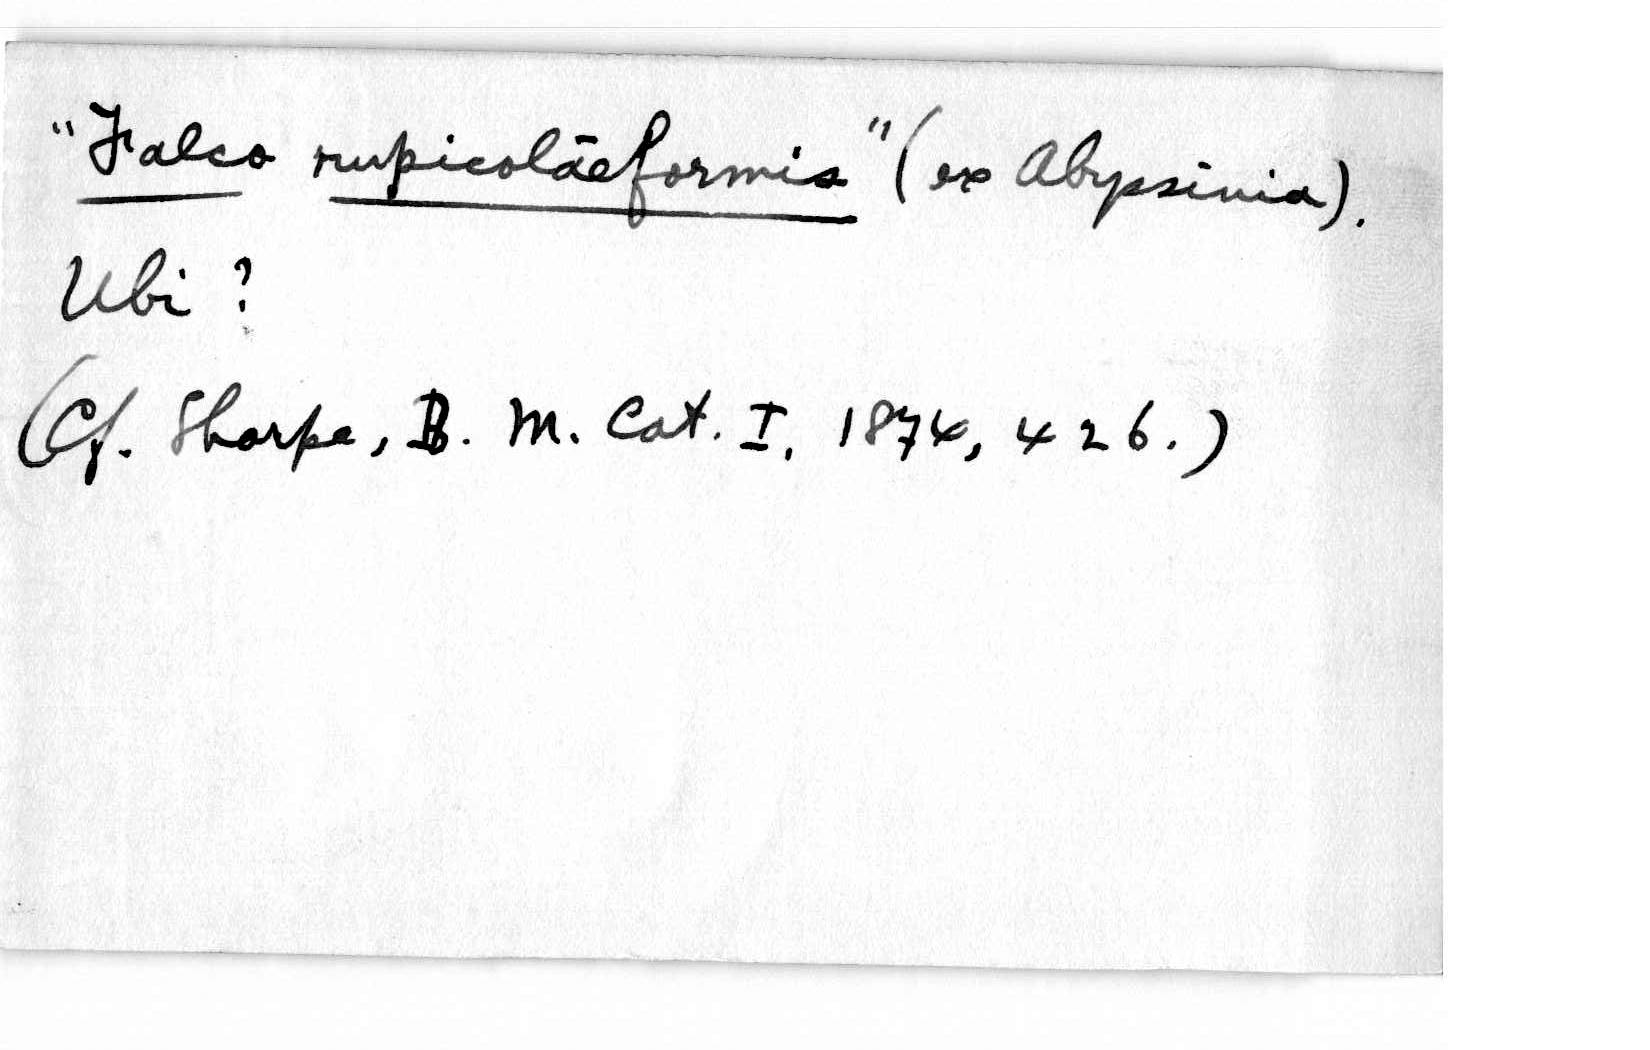 "Falco rupicolāeformis" (ex Abyssinia).
Ubi ?
(Cf. Sharpe, B. M. Cat. I, 1874, 426.)